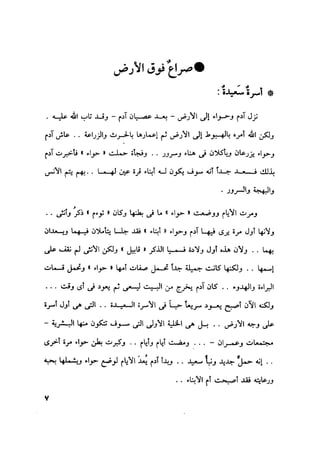 ●صراع فوق الأرض
* أسرةٌ سَعيدةٌ :
نزل آدم وحواء إلى الأرض – بعد عصيان آدم – وقد تاب الله عليه .
ولكن الله أمره بالهبوط إلى الأرض ثم إعمارها بالحرث والزراعة . . عاش آدم
وحواء يزرعان ويأكلان فى هناء وسرور . . وفجأة حملت « حواء » فأخبرت آدم
بذلك فسعد جداً أنه سوف يكون له أبناء قرة عين لهما . . بهم يتم الأنس
والبهجة والسرور .
ومرت الأيام ووضعت « حواء » ما فى بطنها وكان « توم » ذكر وأنثى . .
ولأنها أول مرة يرى فيها آدم وحواء « أبناء » فقد جلسا يتأملان فيهما ويسعدان
بهما . . ولأن هذه أول ولادة فسميا الذكر « قابيل » ولكن الأنثى لم نقف على
إسمها . . ولكنها كانت جميلة جداً تحمل صفات أمها « حواء » وتحمل قسمات
البراءة والهدوء . . كان آدم يخرج من البيت ليسعى ثم يعود فى أى وقت . . .
ولكنه الآن أصبح يعود سريعاً حباً فى الأسرة السعيدة . . التى هى أول أسرة
على وجه الأرض . . بل هى الخلية الأولى التى سوف تتكون منها البشرية –
مجتمعات وعمران – . . . ومضت أيام وأيام . . وكبرت بطن حواء مرة أخرى
. . إنه حملٌ جديد ونبأ سعيد . . وبدأ آدم يُعدّ الأيام لوضع حواء ويشملها بحبه
ورعايته فقد أصبحت أم الأبناء . .
٧